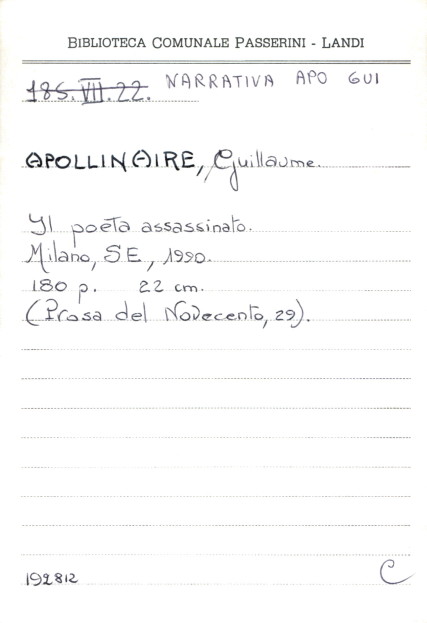 BIBLIOTECA COMUNALE PASSERINI - LANDI
185.VII.22. NARRATIVA APO GUI
APOLLINAIRE, Guillaume.
Il poeta assassinato.
Milano, SE, 1990.
180 p. 22 cm.
(Prosa del Novecento, 29).
192812
C